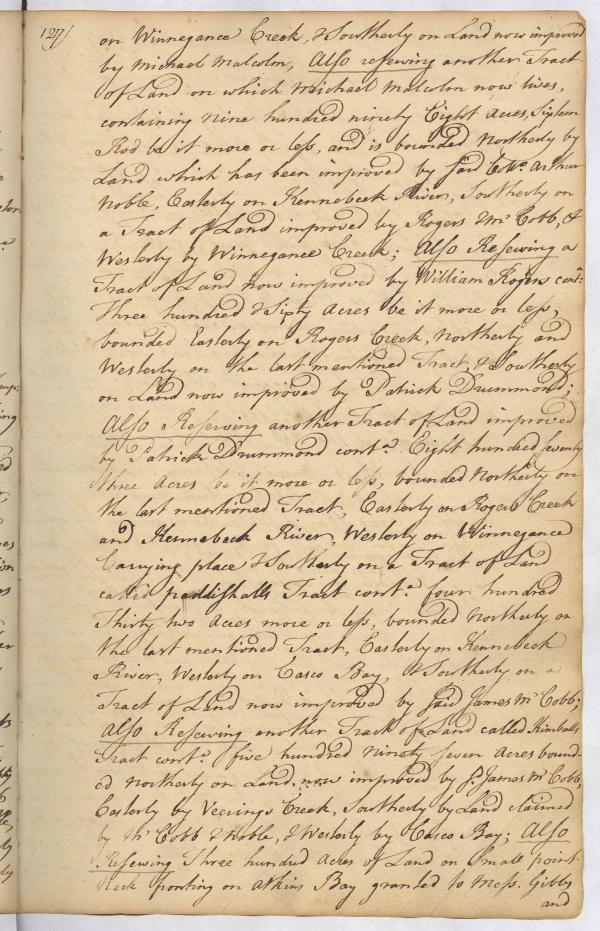 127/
on Winnegance Creek, & Southerly on Land now improved
by Michael Malcolm, Also reserving another Tract
of Land on which Michael Malcolm now lives,
containing Nine hundred ninety Eight Acres, Sixteen
Rod be it more or less, and is bounded Northerly by
Land which has been improved by said Colo. Arthur
Noble, Easterly on Kennebeck River, Southerly on
a Tract of Land improved by Rogers & Mc Cobb, &
Westerly by Winnegance Creek; Also Reserving a
Tract of Land now improved by William Rogers cont.
Three hundred & Sixty Acres be it more or less,
bounded Easterly on Rogers Creek, Northerly and
Westerly on the last mentioned Tract, & Southerly
on Land now improved by Patrick Drummond;
Also Reserving another Tract of Land improved
by Patrick Drummond conta. Eight hundred seventy
three Acres be it more or less, bounded Northerly on
the last mentioned Tract, Easterly on Rogers Creek
and Kennebeck River, Westerly on Winnegance
Carrying place & Southerly on a Tract of Land
called Paddishalls Tract conta. four hundred
Thirty two Acres more or less, bounded Northerly on
the last mentioned Tract, Easterly on Kennebeck
River, Westerly on Casco Bay, & Southerly on a
Tract of Land now improved by said James Mc Cobb;
Also Reserving another Tract of Land called Kimballs
Tract conta. five hundred ninety seven Acres bound-
ed Northerly on Land now improved by sd. James Mc Cobb,
Easterly by Veerings Creek, Southerly by Land claimed
by Mc Cobb & Noble, & Westerly by Casco Bay; Also
Reserving Three hundred Acres of Land on Small point
Neck fronting on Atkins Bay granted to Mess. Gibbs
and